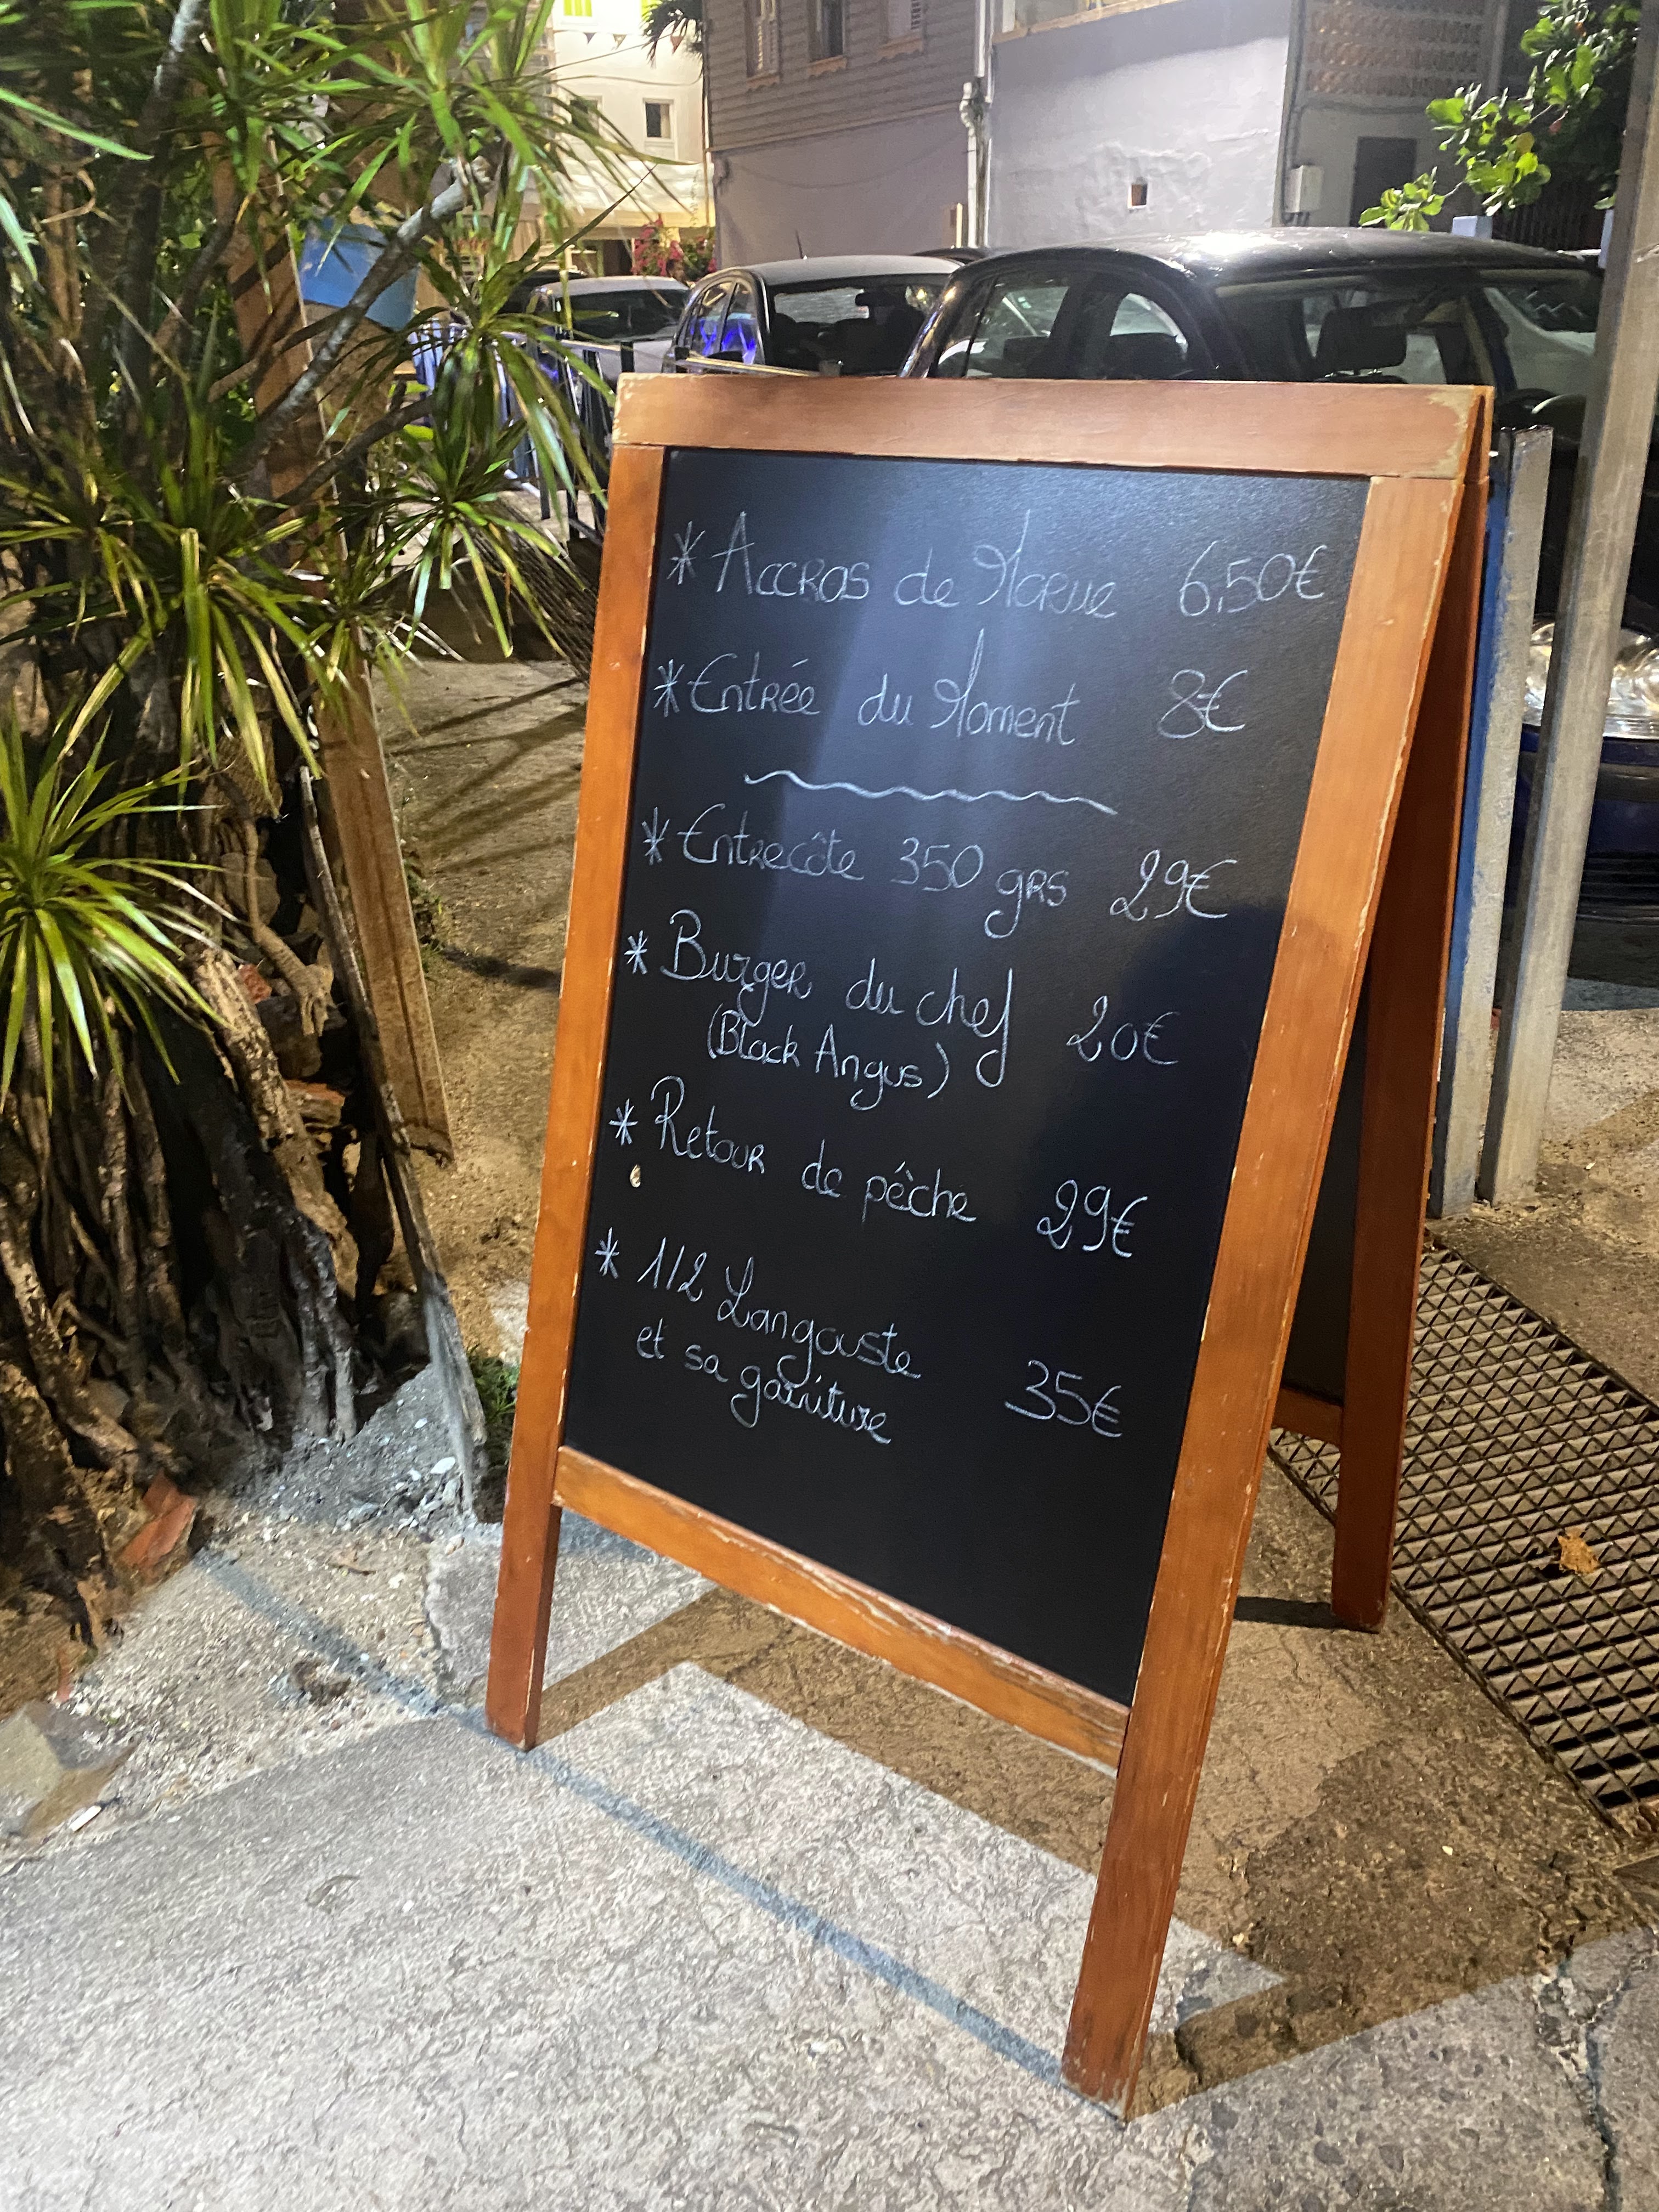 * Accros de Morue 6,50€
* Entrée du Moment 8€
* Entrecôte 350 grs 29€
* Burger du chef 20€
(Black Angus)
* Retour de pêche 29€
* 1/2 Langouste
et sa garniture 35€